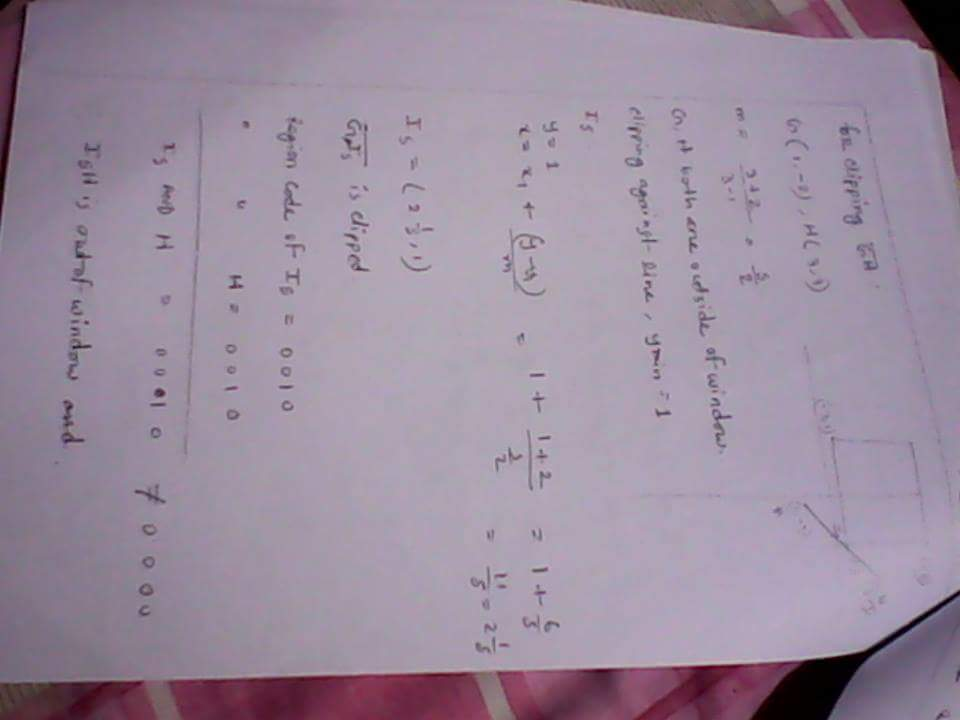 for clipping GH.
G(1,-2), H(3,3)
m = 3+2/3-1 = 5/2
G, H both are outside of window.
clipping against line, ymin = 1
I5
y = 1
x = x1 + (y-y1)/m = 1 + 1+2/5/2 = 1 + 6/5
= 11/5 = 2 1/5
I5 = (2 1/5, 1)
GI5 is clipped
Region code of I5 = 0010
" " H = 0010
I5 AND H = 0010 ≠ 0000
I5H is out of window and